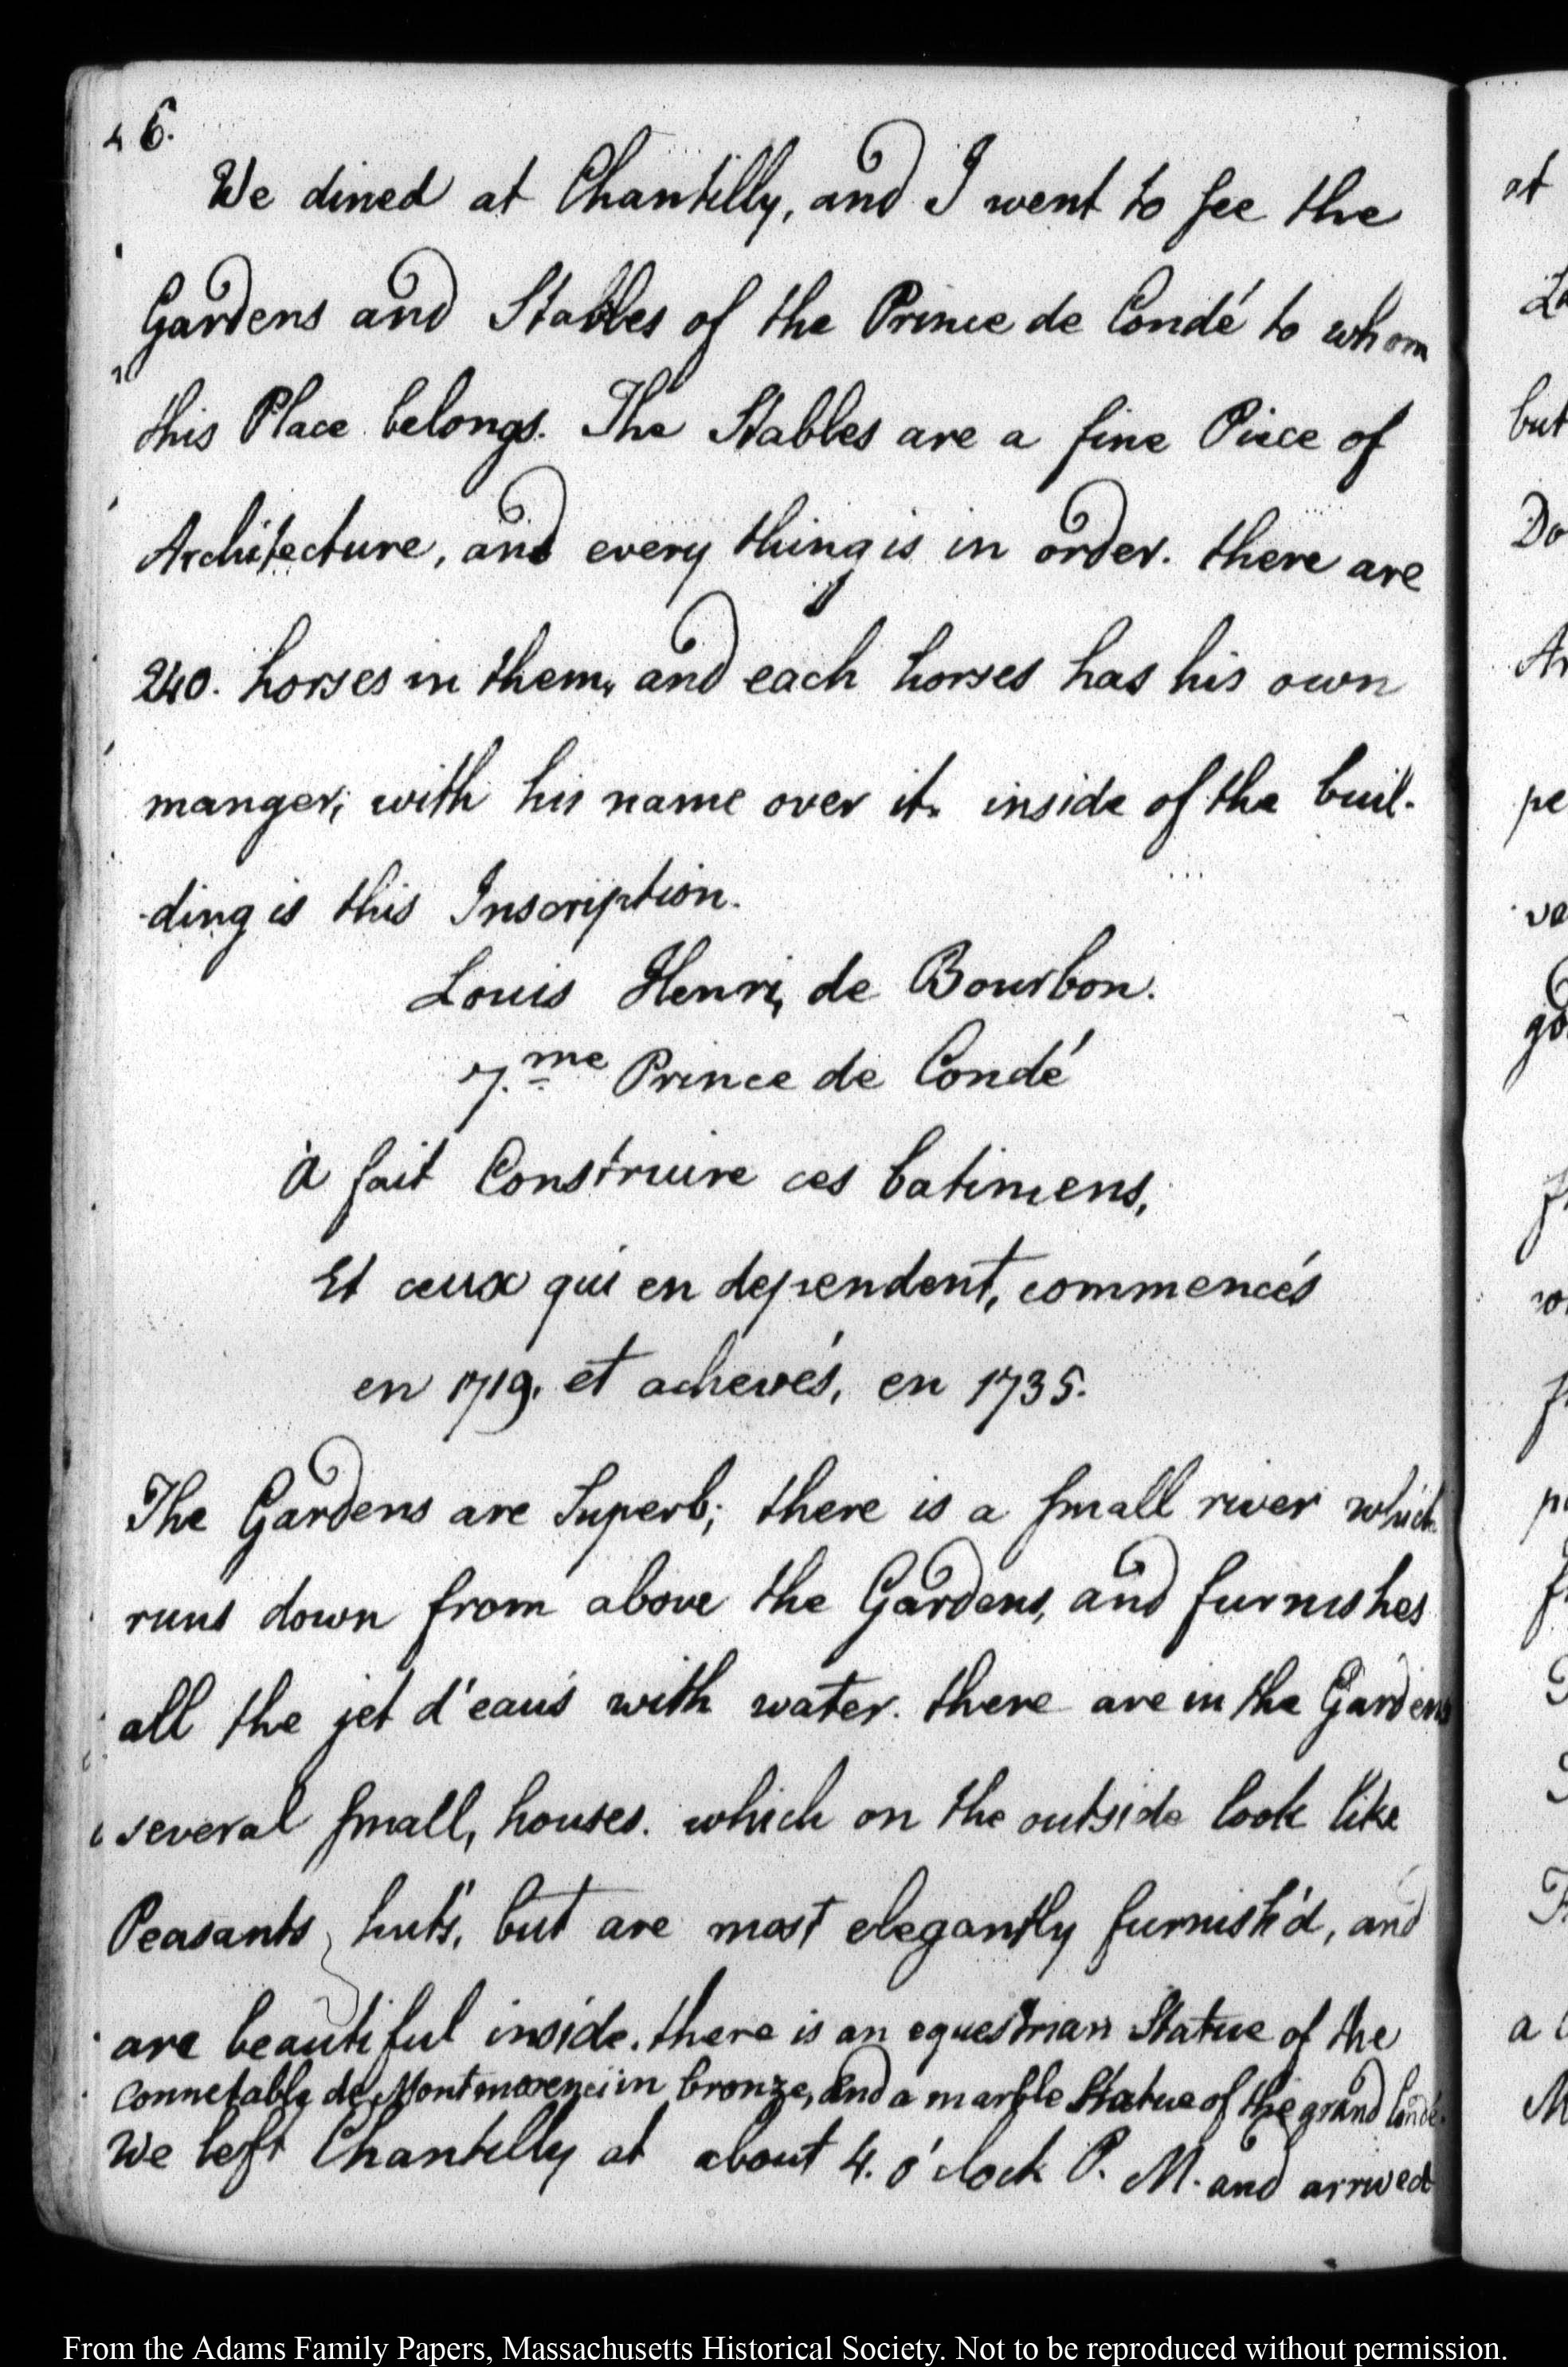 46.
We dined at Chantilly, and I went to see the
Gardens and Stables of the Prince de Condé to whom
this Place belongs. The Stables are a fine Piece of
Architecture, and every thing is in order. there are
240. horses in them, and each horses has his own
manger; with his name over it. inside of the buil-
-ding is this Inscription.
Louis Henri, de Bourbon.
7.me Prince de Condé
à fait Construire ces batimens,
Et ceux qui en dependent, commencés
en 1719. et achevés, en 1735.
The Gardens are Superb; there is a small river which
runs down from above the Gardens, and furnishes
all the jet d'eaus with water. there are in the Gardens
several small, houses. which on the outside look like
Peasants huts, but are most elegantly furnish'd, and
are beautiful inside. there is an equestrian Statue of the
Connetable de Montmorenci in bronze, and a marble Statue of the grand Condé.
We left Chantilly at about 4. o'clock P. M. and arrived
at
but
Do
pe
ve
go
a
M
From the Adams Family Papers, Massachusetts Historical Society. Not to be reproduced without permission.